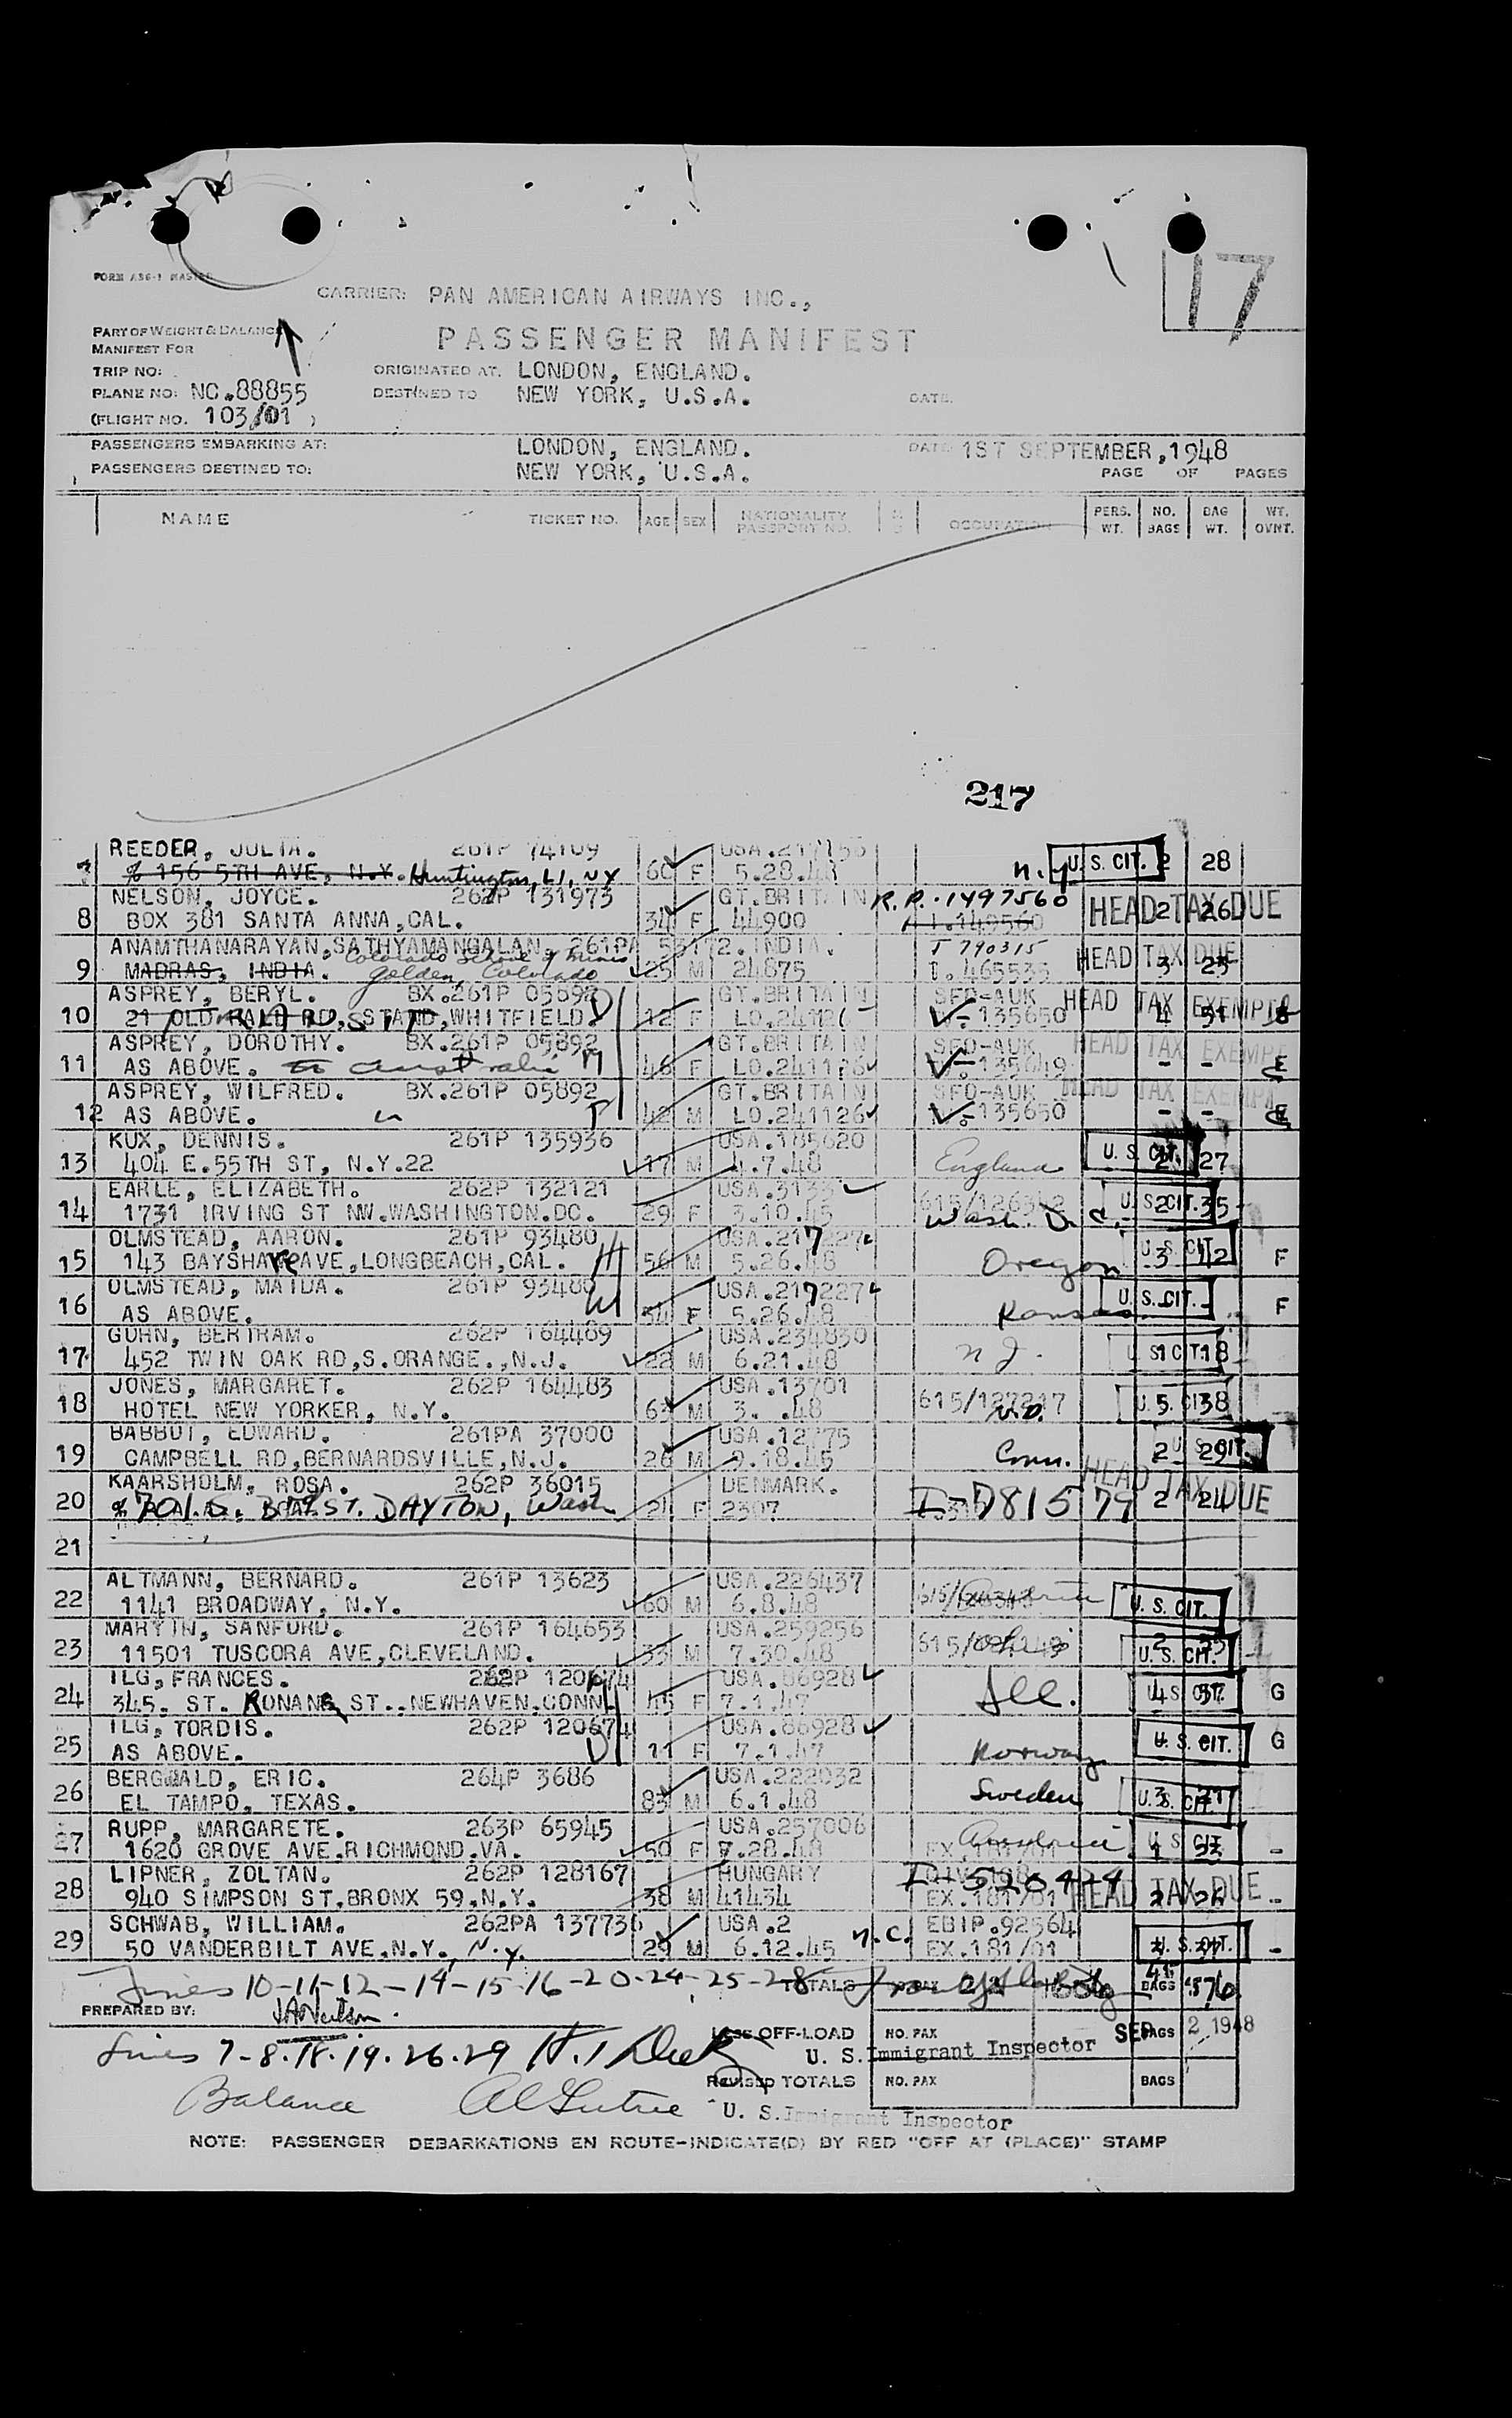 17
FORM A86-1 MASTER
CARRIER: PAN AMERICAN AIRWAYS INC.,
PART OF WEIGHT & BALANCE
PASSENGER MANIFEST
MANIFEST FOR
TRIP NO: ORIGINATED AT. LONDON, ENGLAND.
PLANE NO: NC.88855 DESTINED TO NEW YORK, U.S.A. DATE.
(FLIGHT NO. 103/01 )
PASSENGERS EMBARKING AT: LONDON, ENGLAND. DATE 1ST SEPTEMBER,1948
PASSENGERS DESTINED TO: NEW YORK, U.S.A. PAGE OF PAGES
NAME TICKET NO. AGE SEX NATIONALITY PASSPORT NO. OCCUPATION PERS. WT. NO. BAGS BAG WT. WT. OVNT.
217
REEDER, JULIA. 261P 74109 USA.217156
% 156 5TH AVE, N.Y. Huntington, LI, NY 60 F 5.28.48 N.Y. U.S. CIT. 2 28
NELSON, JOYCE. 262P 131973 GT.BRITAIN R.P. 1497560
8 BOX 381 SANTA ANNA,CAL. 34 F 44900 HEAD TAX DUE 2 26
ANAMTHANARAYAN,SATHYAMANGALAN. 261PA 53172. INDIA. T 790315
Colorado School of Mines
9 MADRAS, INDIA. Golden, Colorado 25 M 24875 I. 465535 HEAD TAX DUE 3 23
ASPREY, BERYL. BX.261P 05892 D GT.BRITAIN SFO-AUK HEAD TAX EXEMPT
10 21 OLD RD, STAND,WHITFIELD. 12 F LO.241126 V-135650 4 51
ASPREY, DOROTHY. BX.261P 05892 GT.BRITAIN SFO-AUK HEAD TAX EXEMPT
11 AS ABOVE. to Australia M 46 F LO.241126 V-135649 - - E
ASPREY, WILFRED. BX.261P 05892 GT.BRITAIN SFO-AUK HEAD TAX EXEMPT
12 AS ABOVE. 42 M LO.241126 V-135650 - - E
KUX, DENNIS. 261P 135936 USA.185620
13 404 E.55TH ST, N.Y.22 17 M 4.7.48 England U.S. CIT. 2 27
EARLE, ELIZABETH. 262P 132121 USA.3133
14 1731 IRVING ST NW.WASHINGTON.DC. 29 F 3.10.45 Wash. D.C. U.S. CIT. 2 35
OLMSTEAD, AARON. 261P 93480 H USA.217227
15 143 BAYSHORE AVE,LONGBEACH,CAL. 56 M 5.26.48 Oregon U.S. CIT. 3 42 F
OLMSTEAD, MAIDA. 261P 93480 W USA.217227
16 AS ABOVE. 54 F 5.26.48 Kansas U.S. CIT. - - F
GUHN, BERTRAM. 262P 164469 USA.234830
17 452 TWIN OAK RD,S.ORANGE.,N.J. 22 M 6.21.48 N.J. U.S. CIT. 1 18
JONES, MARGARET. 262P 164483 USA.13701
18 HOTEL NEW YORKER, N.Y. 63 M 3. .48 615/127217 N.D. U.S. CIT. 5 38
BABBOT, EDWARD. 261PA 37000 USA.12775
19 CAMPBELL RD,BERNARDSVILLE,N.J. 26 M 9.18.45 Conn. U.S. CIT. 2 29
KAARSHOLM, ROSA. 262P 36015 DENMARK. HEAD TAX DUE
20 ST. DAYTON, Wash 21 F 2307 I-781579 2 24
21
ALTMANN, BERNARD. 261P 13623 USA.226437
22 1141 BROADWAY, N.Y. 60 M 6.8.48 Austria U.S. CIT.
MARTIN, SANFORD. 261P 164653 USA.259256
23 11501 TUSCORA AVE,CLEVELAND. 33 M 7.30.48 Ohio U.S. CIT.
ILG, FRANCES. 262P 120674 USA.86928
24 345. ST. RONANS ST..NEWHAVEN.CONN. 45 F 7.1.47 Ill. U.S. CIT. 4 57 G
ILG, TORDIS. 262P 120674 USA.86928
25 AS ABOVE. D 11 F 7.1.47 Norway U.S. CIT. G
BERGWALD, ERIC. 264P 3686 USA.222032
26 EL TAMPO, TEXAS. 83 M 6.1.48 Sweden U.S. CIT.
RUPP, MARGARETE. 263P 65945 USA.257006
27 1620 GROVE AVE.RICHMOND.VA. 50 F 7.28.48 EX.181/01 Austria U.S. CIT. -
LIPNER, ZOLTAN. 262P 128167 HUNGARY I-520424
28 940 SIMPSON ST.BRONX 59.N.Y. 38 M 41434 EX.181/01 HEAD TAX DUE 2 26 -
SCHWAB, WILLIAM. 262PA 137736 USA.2 EBIP.92564
29 50 VANDERBILT AVE.N.Y. N.Y. 29 M 6.12.45 N.C. EX.181/01 U.S. CIT. -
Lines 10-11-12-14-15-16-20-24-25-28 TOTALS BAGS
PREPARED BY:
Less OFF-LOAD NO. PAX SEP 2 1948 BAGS
Lines 7-8-18-19-26-29
U. S. Immigrant Inspector
Revised TOTALS NO. PAX BAGS
Balance
U. S. Immigrant Inspector
NOTE: PASSENGER DEBARKATIONS EN ROUTE-INDICATE(D) BY RED "OFF AT (PLACE)" STAMP